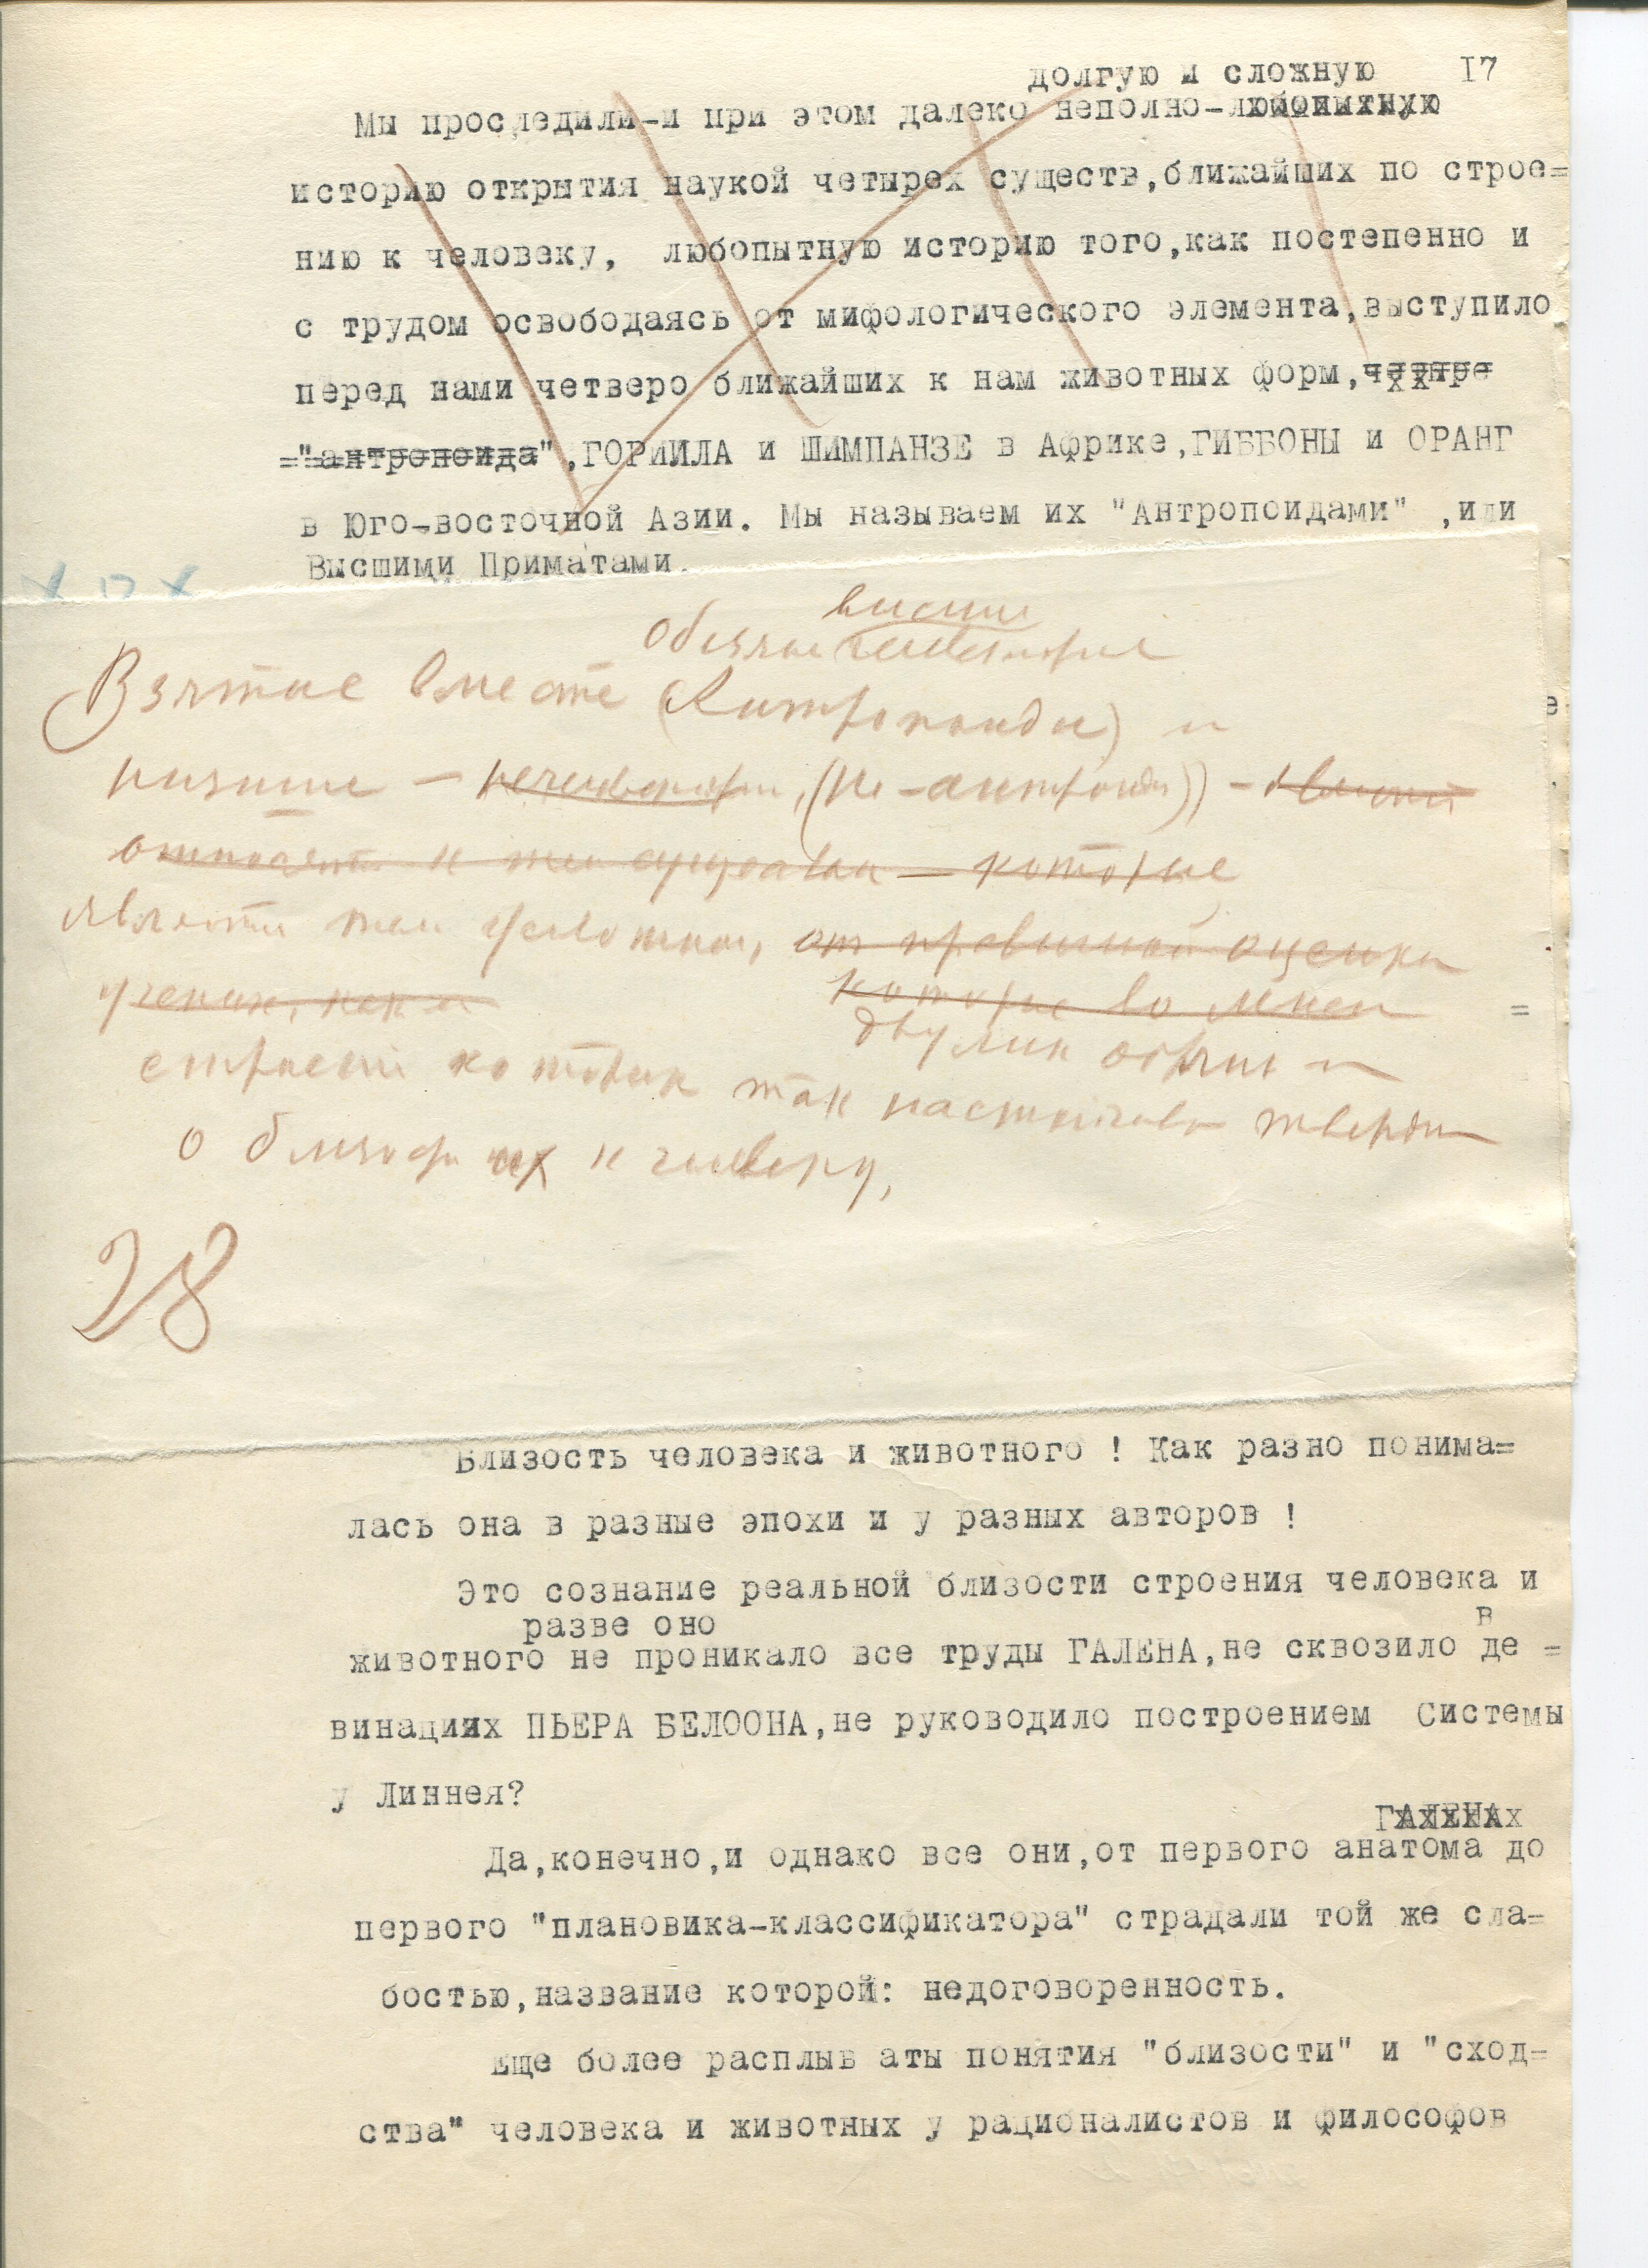 долгую и сложную 17
Мы проследили-и при этом далеко неполно-любопытную
историю открытия наукой четырех существ,ближайших по строе=
нию к человеку, любопытную историю того,как постепенно и
с трудом освободаясь от мифологического элемента,выступило
перед нами четверо ближайших к нам животных форм,четыре
="антропоида",ГОРИИЛА и ШИМПАНЗЕ в Африке,ГИББОНЫ и ОРАНГ
в Юго-восточной Азии. Мы называем их "Антропоидами" ,или
Высшими Приматами.
высшие
Обезьяны
Взятые вместе (Антропоиды) и
низшие —
относят к тем существам — которые
являются тем
оценки
которые во
страсти которых так настойчиво
о близости их к человеку,
28
Близость человека и животного ! Как разно понима=
лась она в разные эпохи и у разных авторов !
Это сознание реальной близости строения человека и
разве оно в
животного не проникало все труды ГАЛЕНА,не сквозило де =
винациих ПЬЕРА БЕЛООНА,не руководило построением Системы
у Линнея?
ГАЛЕНАх
Да,конечно,и однако все они,от первого анатома до
первого "плановика-классификатора" страдали той же сла=
бостью,название которой: недоговоренность.
Еще более расплыв аты понятия "близости" и "сход=
ства" человека и животных у рационалистов и философов